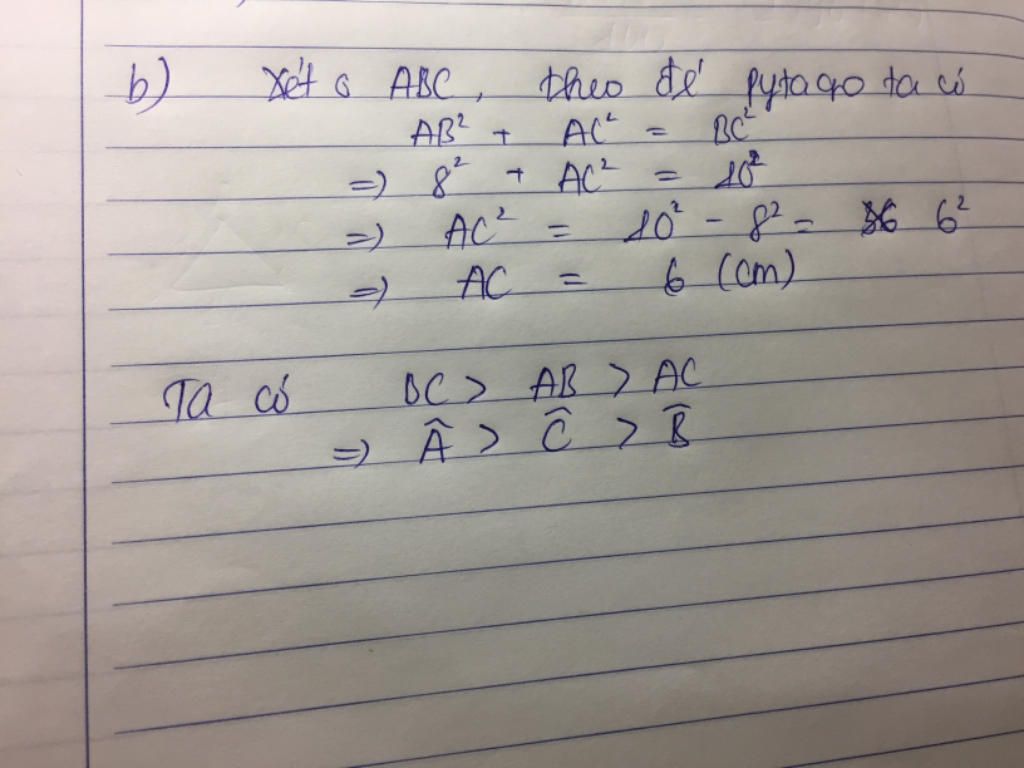 b) Xét △ ABC, theo đ/l pytago ta có
AB² + AC² = BC²
=) 8² + AC² = 10²
=) AC² = 10² - 8² = 6²
=) AC = 6 (cm)
Ta có BC > AB > AC
=) Â > Ĉ > B̂